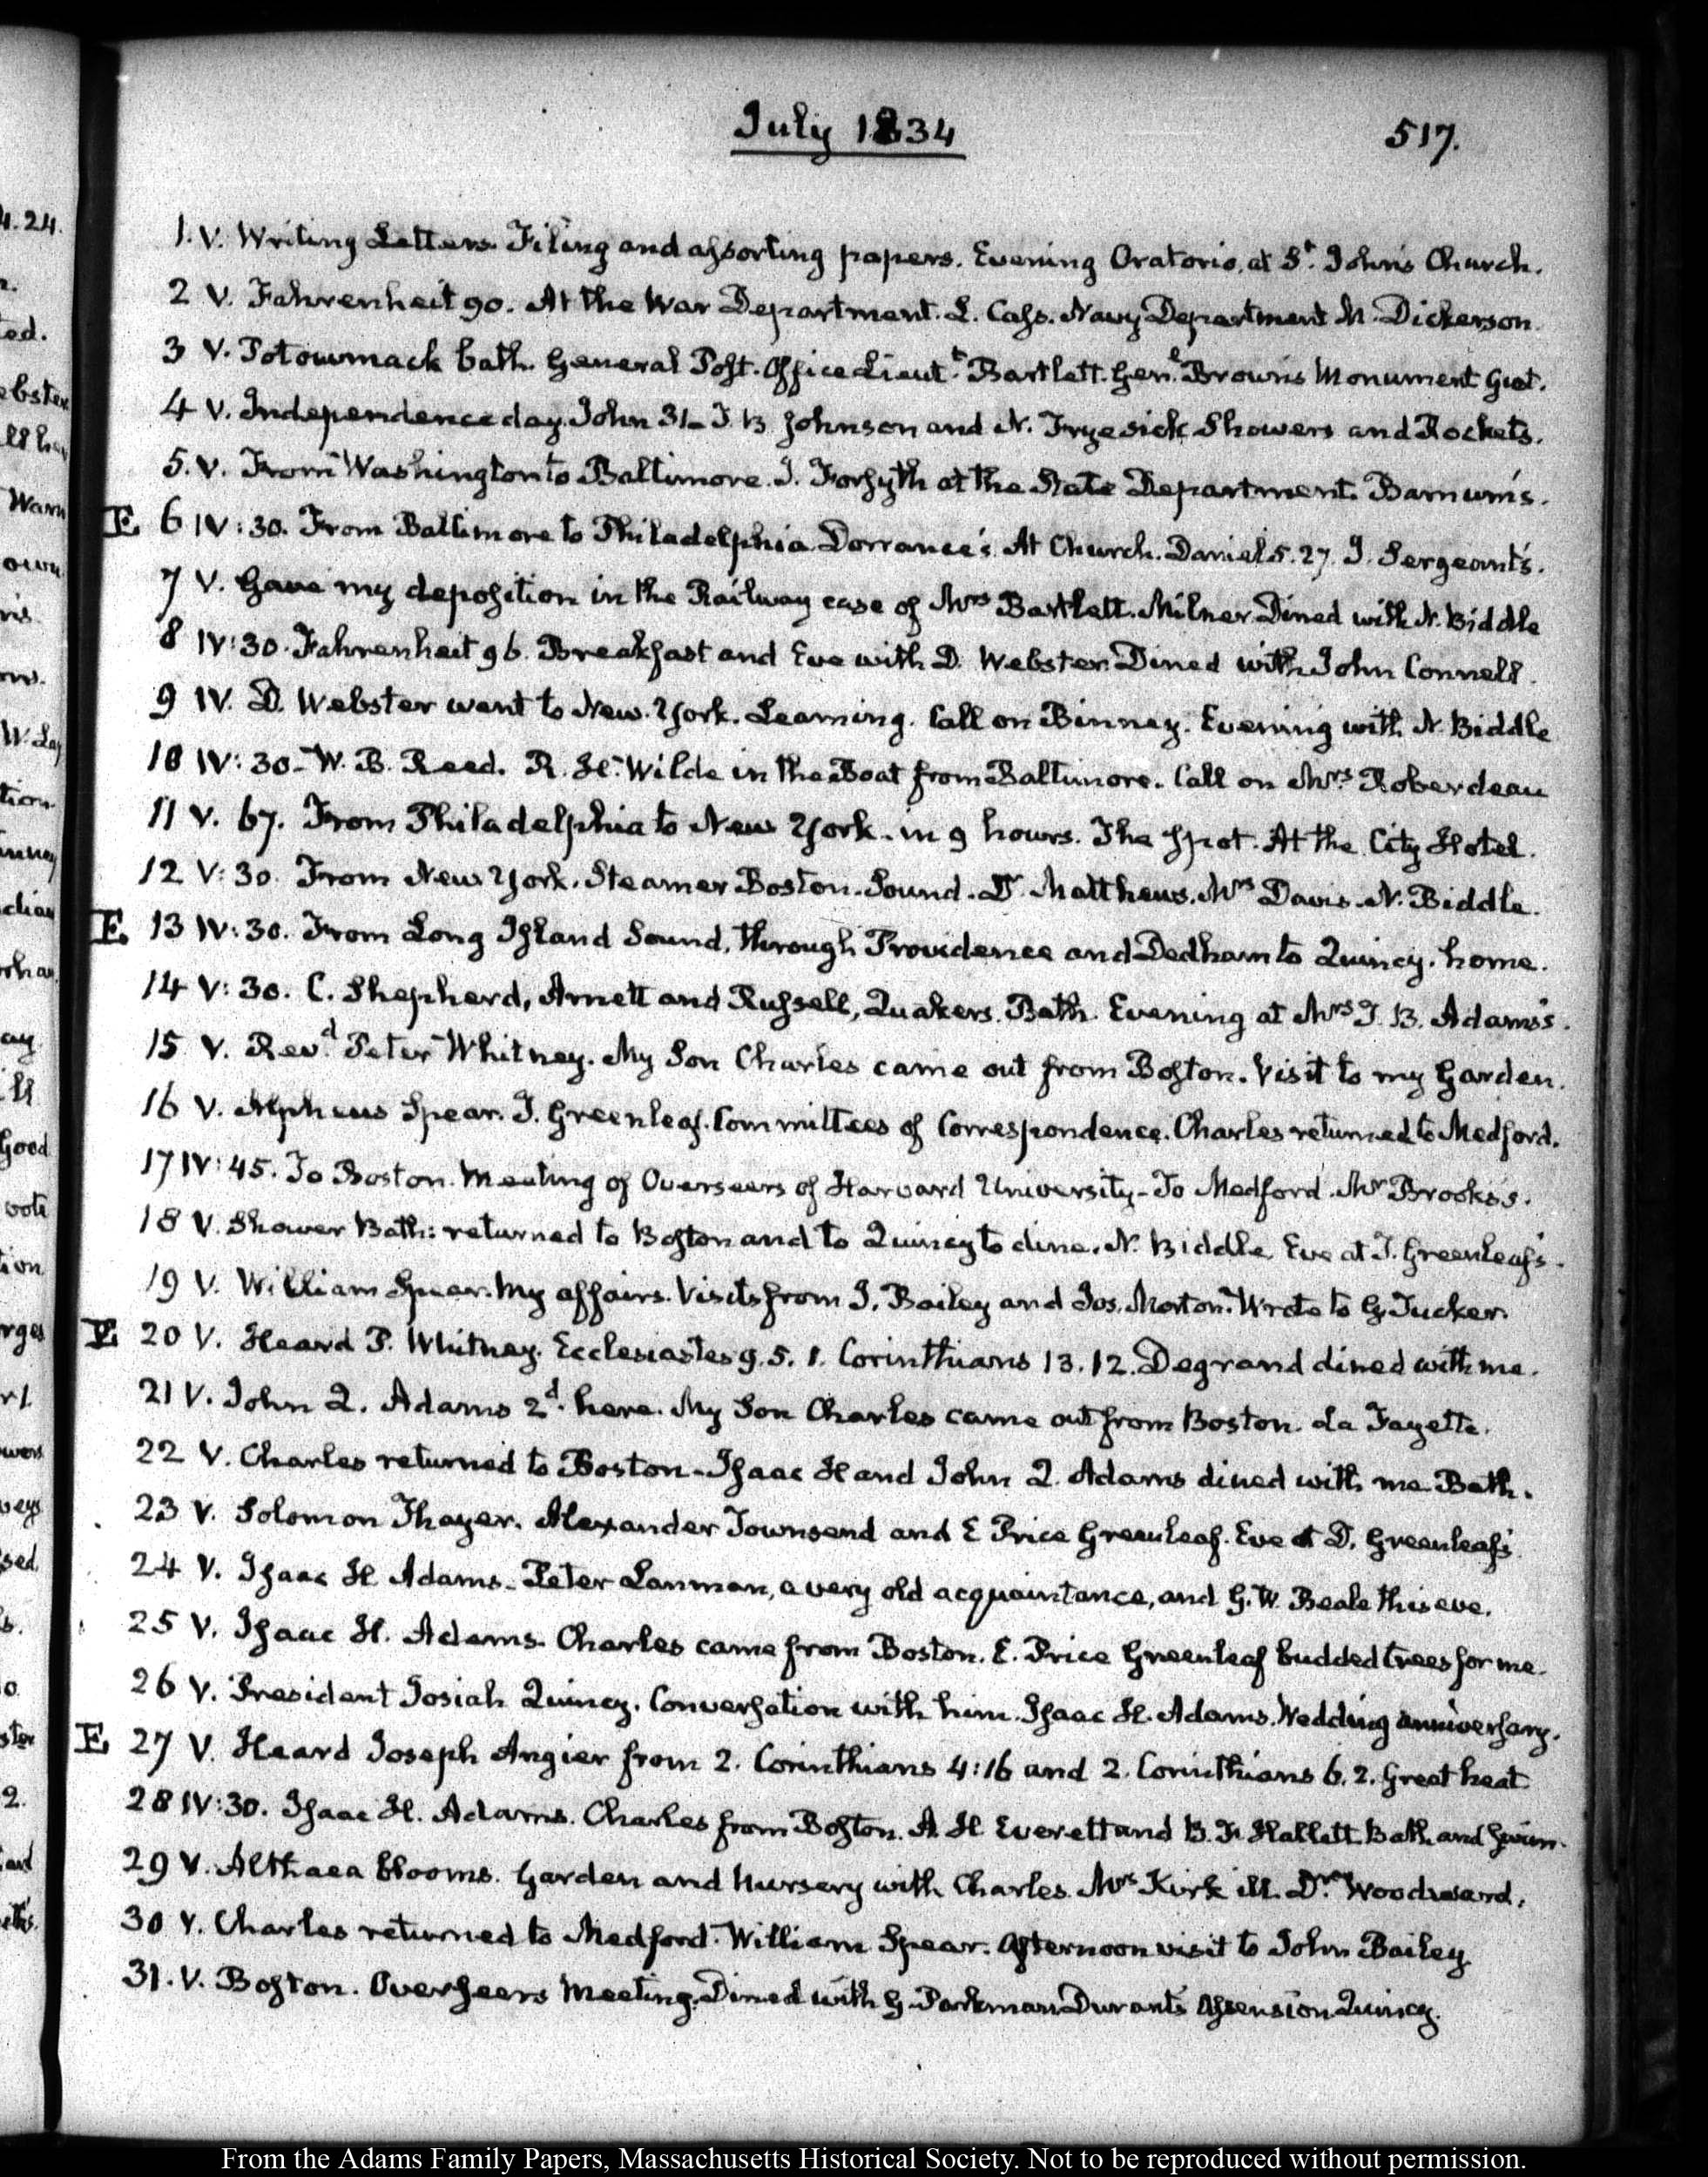 July 1834
517.
1. V. Writing Letters. Filing and assorting papers. Evening Oratorio, at St. John's Church.
2 V. Fahrenheit 90. At the War Department. L. Cass. Navy Department M. Dickerson.
3 V. Potowmack bath. General Post-Office Lieutt. Bartlett. Genl. Brown's Monument
4 V. Independence day. John 31 J. B. Johnson and N. Frye sick Showers and Rockets.
5. V. From Washington to Baltimore. J. Forsyth at the State Department. Barnum's.
E. 6 IV:30. From Baltimore to Philadelphia Dorrance's. At Church. Daniel 5.27. J. Sergeant's.
7 V. Gave my deposition in the Railway case of Mrs Bartlett. Milner. Dined with N. Biddle
8 IV:30. Fahrenheit 96. Breakfast and Eve with D. Webster. Dined with John Connell.
9 IV. D. Webster went to New-York. Leaming. Call on Binney. Evening with N. Biddle
10 IV:30 W. B. Reed. R. H. Wilde in the Boat from Baltimore. Call on Mrs. Roberdeau
11 V. 67. From Philadelphia to New York in 9 hours. The Spot. At the City Hotel.
12 V:30. From New York. Steamer Boston. Sound. Dr. Matthews. Mrs Davis. N. Biddle.
E. 13 IV:30. From Long Island Sound, through Providence and Dedham to Quincy. home.
14 V:30. C. Shepherd, Arnett and Russell, Quakers. Bath. Evening at Mrs J. B. Adams's.
15 V. Revd. Peter Whitney. My Son Charles came out from Boston. Visit to my Garden.
16 V. Alpheus Spear. T. Greenleaf. Committees of Correspondence. Charles returned to Medford.
17 IV:45. To Boston. Meeting of Overseers of Harvard University. To Medford. Mr Brooks's.
18 V. Shower Bath: returned to Boston and to Quincy to dine. N. Biddle Eve at T. Greenleaf's.
19 V. William Spear. My affairs. Visits from J. Bailey and Jos. Morton. Wrote to G Tucker.
E 20 V. Heard P. Whitney. Ecclesiastes 9.5. 1. Corinthians 13.12. Degrand dined with me.
21 V. John Q. Adams 2d. here. My Son Charles came out from Boston. La Fayette.
22 V. Charles returned to Boston. Isaac H and John Q. Adams dined with me Bath.
23 V. Solomon Thayer. Alexander Townsend and E Price Greenleaf. Eve at D. Greenleaf's
24 V. Isaac H Adams. Peter Lanman, a very old acquaintance, and G. W. Beale this eve.
25 V. Isaac H. Adams. Charles came from Boston. E. Price Greenleaf budded trees for me.
26 V. President Josiah Quincy. Conversation with him. Isaac H. Adams. Wedding anniversary.
E. 27 V. Heard Joseph Angier from 2. Corinthians 4:16 and 2. Corinthians 6.2. Great heat
28 IV:30. Isaac H. Adams. Charles from Boston. A. H. Everett and B. F. Hallett. Bath and swim.
29 V. Althaea blooms. Garden and Nursery with Charles. Mrs Kirk ill. Dr. Woodward.
30 V. Charles returned to Medford. William Spear. Afternoon visit to John Bailey
31. V. Boston. Overseers Meeting. Dined with G. Parkman Durant's Assension. Quincy.
From the Adams Family Papers, Massachusetts Historical Society. Not to be reproduced without permission.